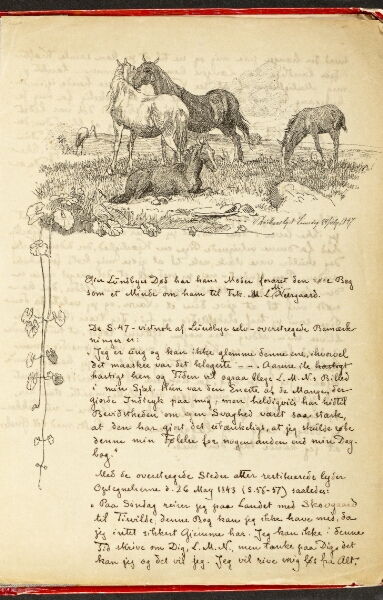 Vedbæk Søndag 18 July 1847
Efter Lundbyes Død har hans Moder foræret denne Bog
som et Minde om ham til Frk. M. L. Neergaard.
De S. 47 - vistnok af Lundbye selv - overstregede Bemærk-
ninger er:
"Jeg er urig og kan ikke glemme denne ene, ihvorvel
det maaskee var det klogeste - - - Aarene ile hastigt
hastigt hen og Tiden vil ogsaa blege L. M. N's Billed
i min Sjæl. Hun var den Eneste af de Mange, der
gjorde Indtryk paa mig; men heldigviis har hidtil
Bevidstheden om egen Svaghed været saa stærk,
at den har gjort det utænkeligt, at jeg skulde røbe
denne min Følelse for nogen anden end min Dag-
bog."
Med de overstregede Steder atter restituerede lyder
Optegnelserne d. 26 May 1843 (S. 56-57) saaledes:
"Paa Søndag reiser jeg paa Landet med Skovgaard
til Tirsilde, denne Bog kan jeg ikke have med, da
jeg intet sikkert Gjemme har. Jeg kan ikke i denne
Tid skrive om Dig, L. M. N., men tænke paa Dig, det
kan jeg og det vil jeg. Jeg vil rive mig løs fra Alt,